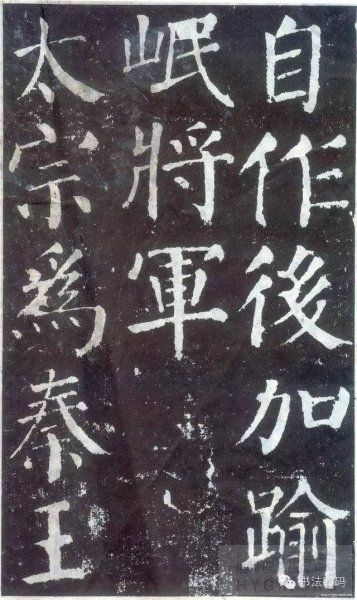 自作後加踰
岷將軍
太宗為秦王
书法密码